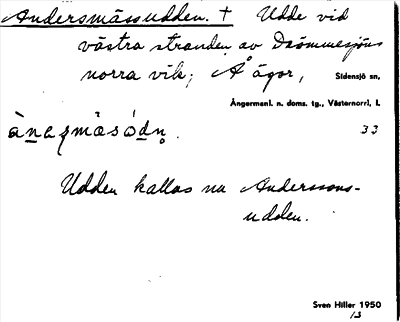 Andersmässudden. † Udde vid
västra stranden av Drömmesjöns
norra vik; Å ägor,
Sidensjö sn,
Ångermanl. n. doms. tg., Västernorrl. l.
33
Udden kallas nu Anderssons-
udden.
Sven Hiller 1950